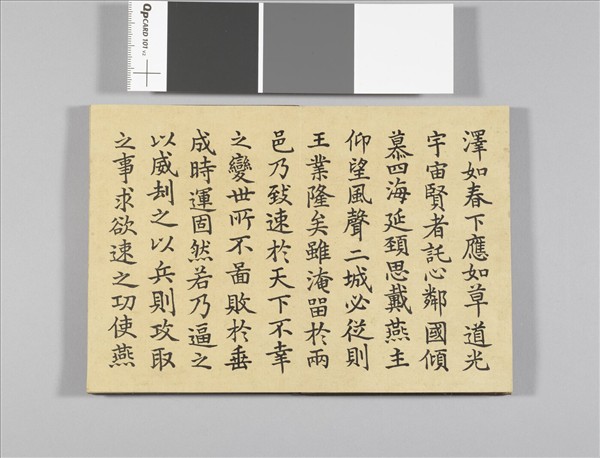 QPCARD 101 v2
澤如春下應如草道光
宇宙賢者託心鄰國傾
慕四海延頸思戴燕主
仰望風聲二城必從則
王業隆矣雖淹留於兩
邑乃致速於天下不幸
之變世所不啚敗於垂
成時運固然若乃逼之
以威刼之以兵則攻取
之事求欲速之功使燕